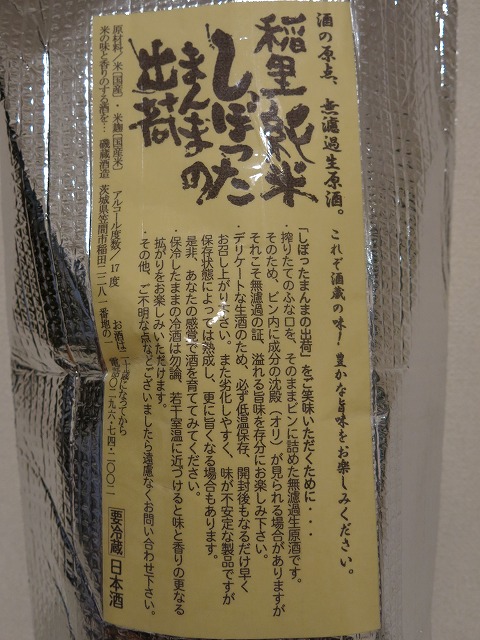 酒の原点、無濾過生原酒。これぞ酒蔵の味！豊かな旨味をお楽しみください。
稲里純米
しぼった
まんまの
出荷
「しぼったまんまの出荷」をご笑味いただくために・・・
・搾りたてのふな口を、そのままビンに詰めた無濾過生原酒です。
そのため、ビン内に成分の沈殿（オリ）が見られる場合がありますが
それこそ無濾過の証、溢れる旨味を存分にお楽しみ下さい。
・デリケートな生酒のため、必ず低温保存、開封後もなるだけ早く
お召し上がり下さい。また劣化しやすく、味が不安定な製品ですが
保存状態によっては熟成し、更に旨くなる場合もあります。
是非、あなたの感覚で酒を育ててみてください。
・保冷したままの冷酒は勿論、若干室温に近づけると味と香りの更なる
拡がりをお楽しみいただけます。
・その他、ご不明な点などございましたら遠慮なくお問い合わせ下さい。
原材料／米（国産）・米麹（国産米）　アルコール度数／17度　お酒は二十歳になってから　要冷蔵　日本酒
米の味と香りのする酒を…　磯蔵酒造　茨城県笠間市稲田二二八一番地の一　電話〇二九六・七四・二〇〇二